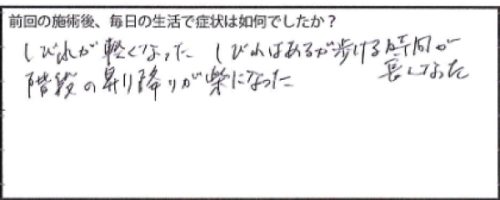 前回の施術後、毎日の生活で症状は如何でしたか？
しびれが軽くなった しびれはあるが歩ける時間が
長くなった
階段の昇り降りが楽になった